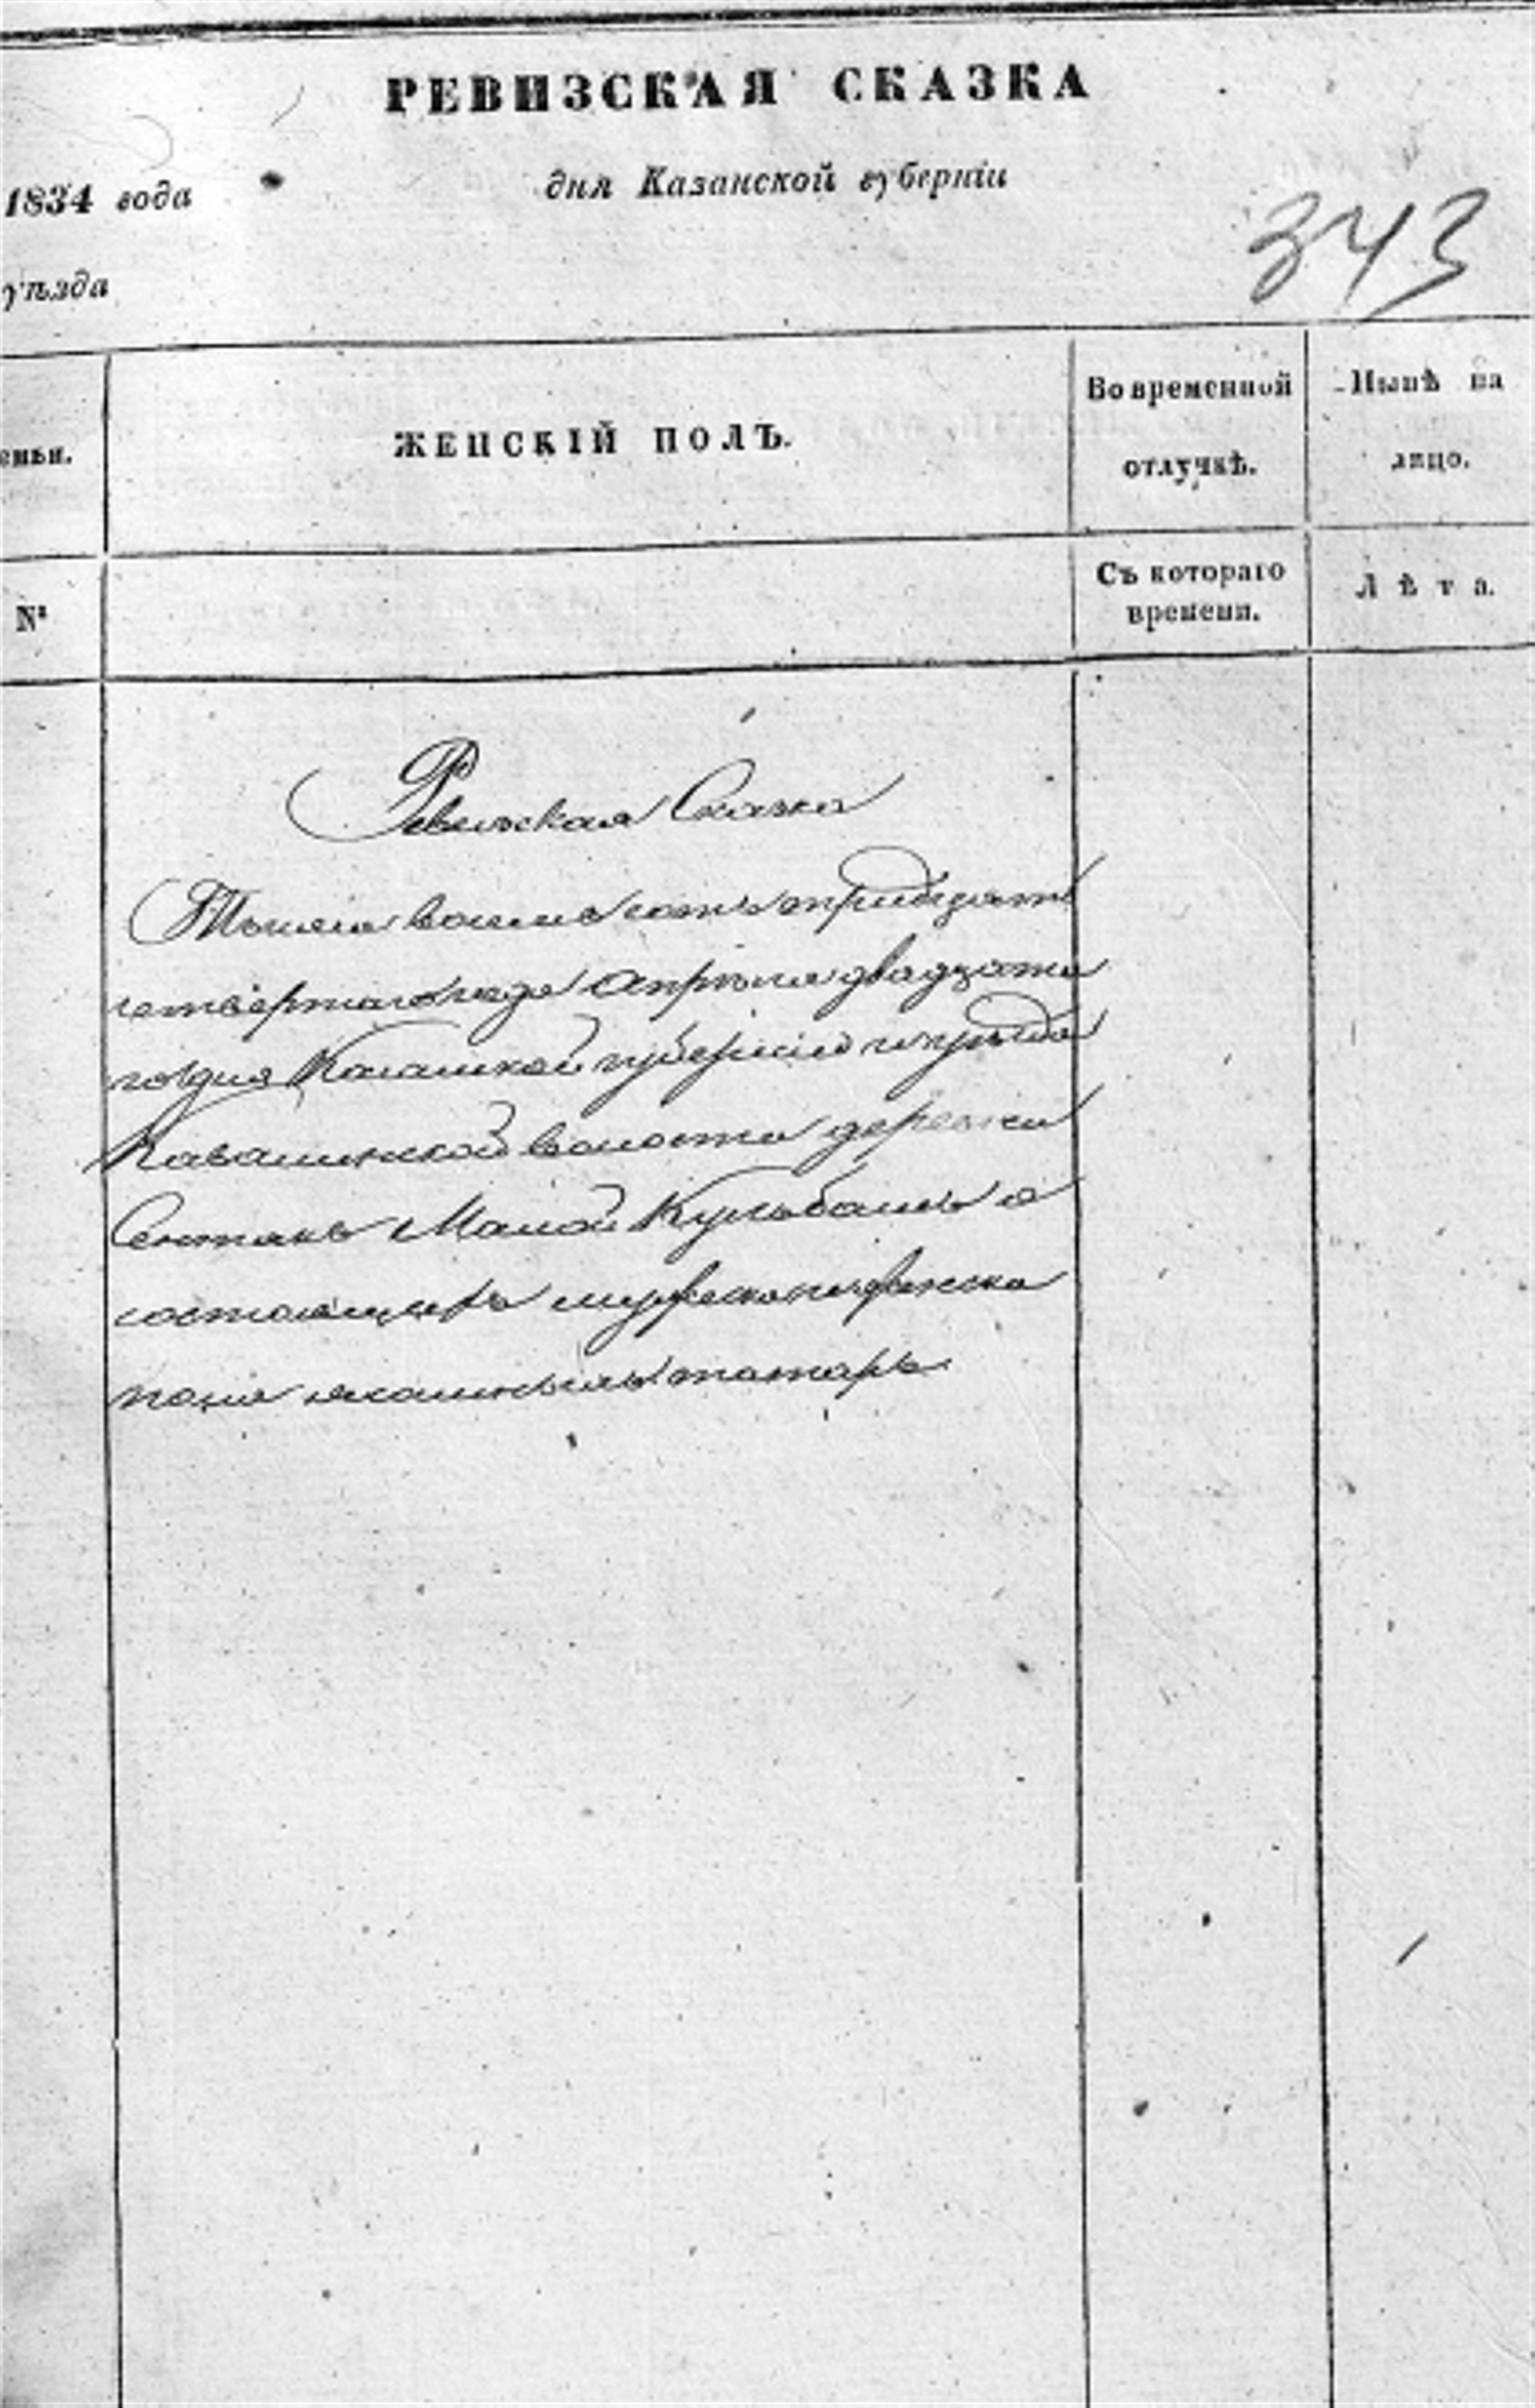 РЕВИЗСКАЯ СКАЗКА
1834 года
дня Казанской губерніи
343
уѣзда
еньи.
ЖЕНСКІЙ ПОЛЪ.
Во временной
отлучкѣ.
Нынѣ на
лицо.
№
Съ котораго
времени.
Лѣта.
Ревизская Сказка
Тысяча восемь сотъ тридцать
четвертаго года Апрѣля двадцата
го дня Казанской губерніи и уѣзда
волости деревни
Малой Кульбашъ о
состоящихъ мужеска и женска
пола татаръ